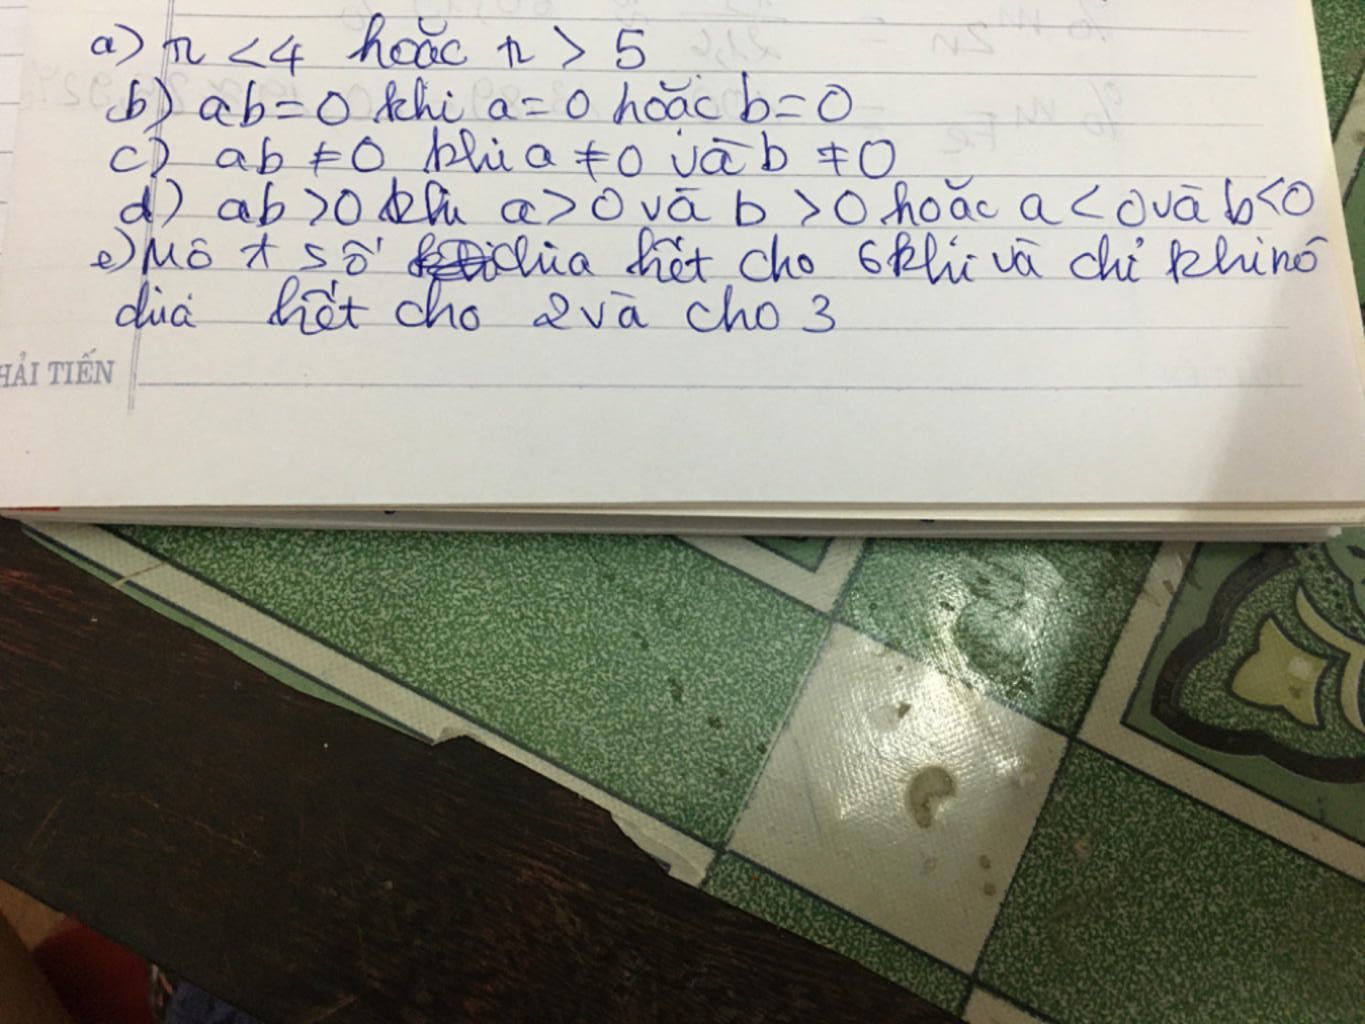 a) n < 4 hoặc n > 5
b) ab = 0 khi a = 0 hoặc b = 0
c) ab ≠ 0 khi a ≠ 0 và b ≠ 0
d) ab > 0 khi a > 0 và b > 0 hoặc a < 0 và b < 0
e) Một số chia hết cho 6 khi và chỉ khi nó
chia hết cho 2 và cho 3
HẢI TIẾN